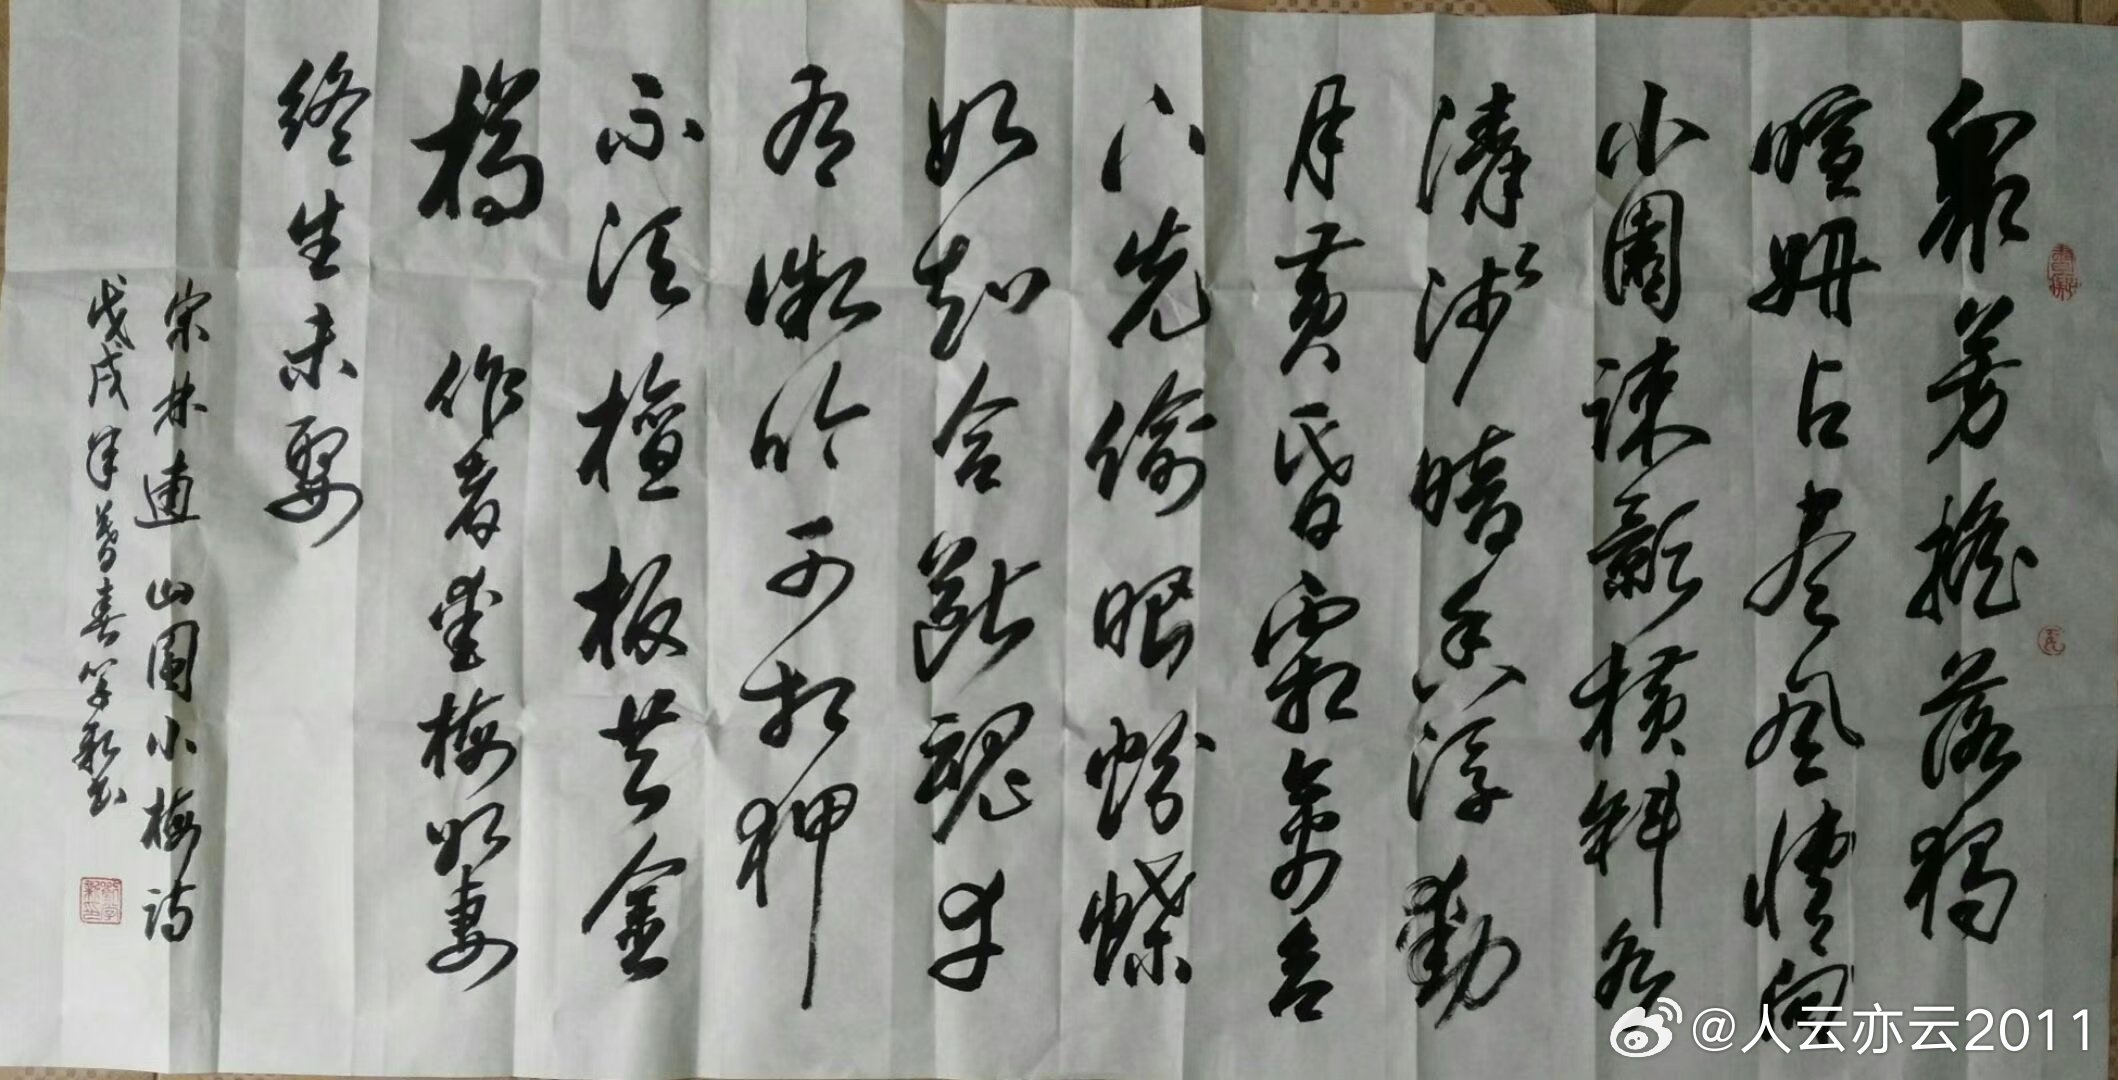 眾芳摇落獨
暄妍占尽风情向
小園疎影横斜水
清浅暗香浮動
月黄昏霜禽欲
下先偷眼粉蝶
如知合斷魂幸
有微吟可相狎
不须檀板共金
樽 作者爱梅如妻
终生未娶
宋林逋 山園小梅诗
戊戌年暮春学新书
@人云亦云2011